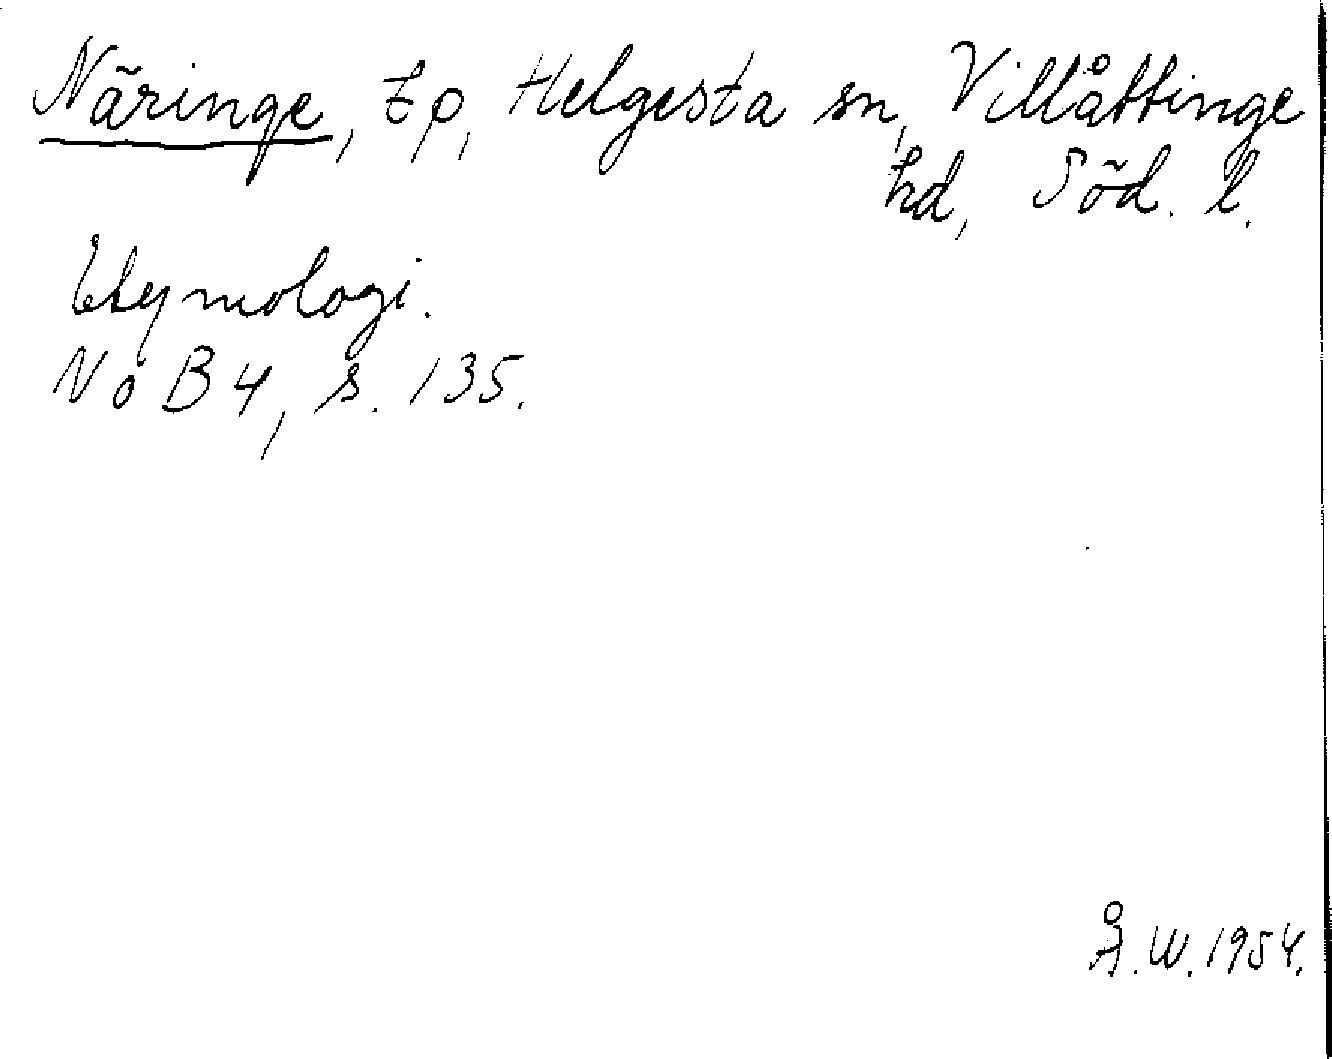 Näringe, tp, Helgesta sn, Villåttinge
hd, Söd. l.
Etymologi.
NoB 4, s. 135.
Å.W. 1954.